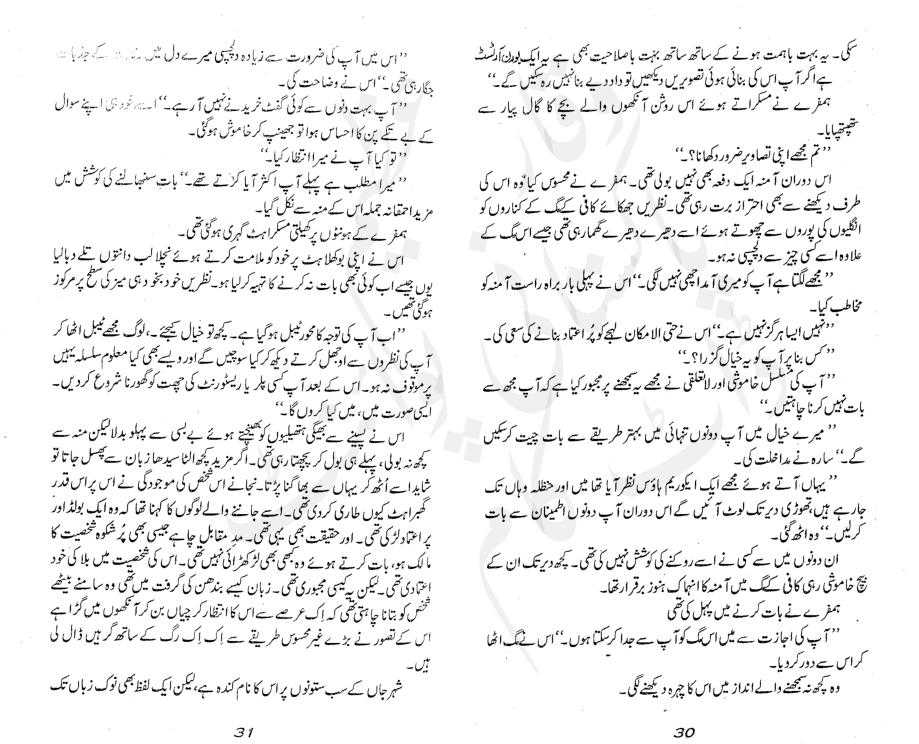 سکی۔ یہ بہت باہمت ہونے کے ساتھ ساتھ بہت باصلاحیت بھی ہے یہ ایک بورن آرٹسٹ
ہے اگر آپ اس کی بنائی ہوئی تصویریں دیکھیں تو داد دیے بنا نہیں رہ سکیں گے۔‘‘
ہمفرے نے مسکراتے ہوئے اس روشن آنکھوں والے بچے کا گال پیار سے
تھپتھپایا۔
’’تم مجھے اپنی تصاویر ضرور دکھانا؟۔‘‘
اس دوران آمنہ ایک دفعہ بھی نہیں بولی تھی۔ ہمفرے نے محسوس کیا وہ اس کی
طرف دیکھنے سے بھی احتراز برت رہی تھی۔ نظریں جھکائے کافی کے مگ کے کناروں کو
انگلیوں کی پوروں سے چھوتے ہوئے اسے دھیرے دھیرے گھما رہی تھی جیسے اس مگ کے
علاوہ اسے کسی چیز سے دلچسپی نہ ہو۔
’’مجھے لگتا ہے آپ کو میری آمد اچھی نہیں لگی۔‘‘ اس نے پہلی بار براہ راست آمنہ کو
مخاطب کیا۔
’’نہیں ایسا ہرگز نہیں ہے۔‘‘ اس نے حتی الامکان لہجے کو پُر اعتماد بنانے کی سعی کی۔
’’کس بنا پر آپ کو یہ خیال گزرا؟۔‘‘
’’آپ کی مسلسل خاموشی اور لاتعلقی نے مجھے یہ سمجھنے پر مجبور کیا ہے کہ آپ مجھ سے
بات نہیں کرنا چاہتیں۔‘‘
’’میرے خیال میں آپ دونوں تنہائی میں بہتر طریقے سے بات چیت کر سکیں
گے۔‘‘ سارہ نے مداخلت کی۔
’’یہاں آتے ہوئے مجھے ایک ایکوریم ہاؤس نظر آیا تھا میں اور حنظلہ وہاں تک
جا رہے ہیں، تھوڑی دیر تک لوٹ آئیں گے اس دوران آپ دونوں اطمینان سے بات
کرلیں۔‘‘ وہ اٹھ گئی۔
ان دونوں میں سے کسی نے اسے روکنے کی کوشش نہیں کی تھی۔ کچھ دیر تک ان کے
بیچ خاموشی رہی کافی کے مگ میں آمنہ کا انہماک ہنوز برقرار تھا۔
ہمفرے نے بات کرنے میں پہل کی تھی
’’آپ کی اجازت سے میں اس مگ کو آپ سے جدا کر سکتا ہوں۔‘‘ اس نے مگ اٹھا
کر اس سے دور کر دیا۔
وہ کچھ نہ سمجھنے والے انداز میں اس کا چہرہ دیکھنے لگی۔
30
’’اس میں آپ کی ضرورت سے زیادہ دلچسپی میرے دل میں کے جذبات
جگا رہی تھی۔‘‘ اس نے وضاحت کی۔
’’آپ بہت دنوں سے کوئی گفٹ خریدنے نہیں آ رہے۔‘‘ اسے خود ہی اپنے سوال
کے بے تکے پن کا احساس ہوا تو جھینپ کر خاموش ہو گئی۔
’’تو کیا آپ نے میرا انتظار کیا۔‘‘
’’میرا مطلب ہے پہلے آپ اکثر آیا کرتے تھے۔‘‘ بات سنبھالنے کی کوشش میں
مزید احمقانہ جملہ اس کے منہ سے نکل گیا۔
ہمفرے کے ہونٹوں پر کھیلتی مسکراہٹ گہری ہو گئی تھی۔
اس نے اپنی بوکھلاہٹ پر خود کو ملامت کرتے ہوئے نچلا لب دانتوں تلے دبا لیا
یوں جیسے اب کوئی بھی بات نہ کرنے کا تہیہ کر لیا ہو۔ نظریں خود بخود ہی میز کی سطح پر مرکوز
ہو گئی تھیں۔
’’اب آپ کی توجہ کا محور ٹیبل ہو گیا ہے۔ کچھ تو خیال کیجئے۔، لوگ مجھے ٹیبل اٹھا کر
آپ کی نظروں سے اوجھل کرتے دیکھ کر کیا سوچیں گے اور ویسے بھی کیا معلوم سلسلہ یہیں
پر موقوف نہ ہو۔ اس کے بعد آپ کسی پلر یا ریسٹورنٹ کی چھت کو گھورنا شروع کر دیں۔
ایسی صورت میں، میں کیا کروں گا۔‘‘
اس نے پسینے سے بھیگی ہتھیلیوں کو بھینچتے ہوئے بے بسی سے پہلو بدلا لیکن منہ سے
کچھ نہ بولی، پہلے ہی بول کر پچھتا رہی تھی۔ اگر مزید کچھ الٹا سیدھا زبان سے پھسل جاتا تو
شاید اسے اُٹھ کر یہاں سے بھاگنا پڑتا۔ نجانے اس شخص کی موجودگی نے اس پر اس قدر
گھبراہٹ کیوں طاری کر دی تھی۔ اسے جاننے والے لوگوں کا کہنا تھا کہ وہ ایک بولڈ اور
پر اعتماد لڑکی تھی۔ اور حقیقت بھی یہی تھی۔ مد مقابل چاہے جیسی بھی پُر شکوہ شخصیت کا
مالک ہو، بات کرتے ہوئے وہ کبھی بھی لڑکھڑائی نہیں تھی۔ اس کی شخصیت میں بلا کی خود
اعتمادی تھی۔ لیکن یہ کیسی مجبوری تھی۔ زبان کیسے بندھن کی گرفت میں تھی وہ سامنے بیٹھے
شخص کو بتانا چاہتی تھی کہ اِک عرصے سے اس کا انتظار کرچیاں بن کر آنکھوں میں گڑا ہے
اس کے تصور نے بڑے غیر محسوس طریقے سے اِک اِک رگ کے ساتھ گرہیں ڈال لی
ہیں۔
شہر جاں کے سب ستونوں پر اس کا نام کندہ ہے، لیکن ایک لفظ بھی نوک زباں تک
31